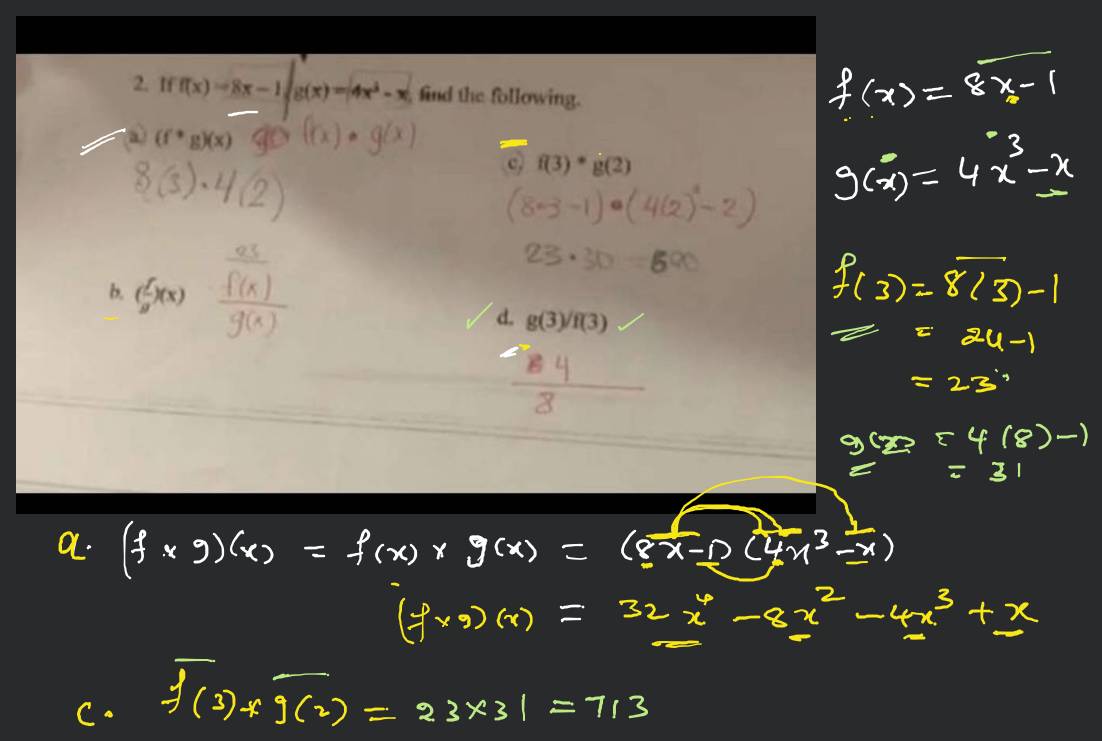 2. If f(x) = 8x - 1, g(x) = 4x³ - x, find the following.
a) (f * g)(x) f(x) • g(x)
8(3) • 4(2)
b. (f/g)(x)
23
f(x)
g(x)
c) f(3) * g(2)
(8•3 - 1) • (4(2)³ - 2)
23 • 30
d. g(3)/f(3)
4
8
f(x) = 8x - 1
g(x) = 4x³ - x
f(3) = 8(3) - 1
= 24 - 1
= 23
g(2) = 4(8) - 1
= 31
a. (f × g)(x) = f(x) × g(x) = (8x - 1)(4x³ - x)
(f × g)(x) = 32x⁴ - 8x² - 4x³ + x
c. f(3) * g(2) = 23 × 31 = 713